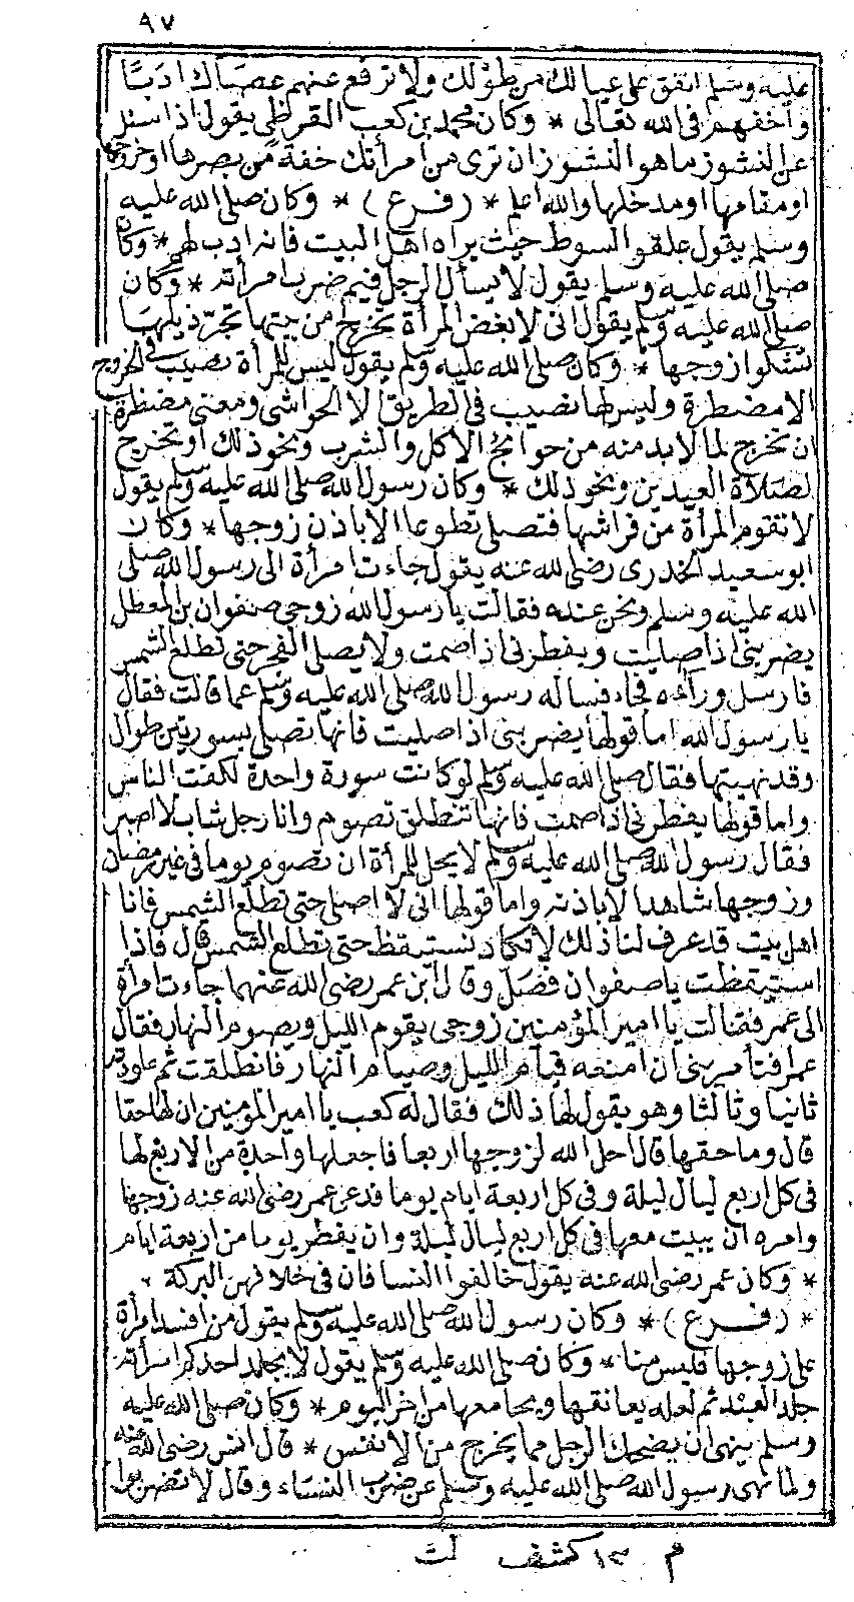 ٩٧
عليه وسلم انفق على عيالك من طولك ولا ترفع عنهم عصاك ادبا
وأخفهم فى الله تعالى * وكان محمد بن كعب القرظى يقول اذا سئل
عن النشوز ما هو النشوز ان ترى من امرأتك خفة من بصرها او خروجها
او مقامها او مدخلها والله اعلم * (فرع) * وكان صلى الله عليه
وسلم يقول علقوا السوط حيث يراه اهل البيت فانه ادب لهم * وكان
صلى الله عليه وسلم يقول لا يسأل الرجل فيم ضرب امرأته * وكان
صلى الله عليه وسلم يقول انى لا بغض المرأة تخرج من بيتها تجر ذيلها
تشكوا زوجها * وكان صلى الله عليه وسلم يقول ليس للمرأة نصيب فى الخروج
الا مضطرة وليس لها نصيب فى الطريق الا الحواشى ومعنى مضطرة
ان تخرج لما لا بد منه من حوائج الاكل والشرب ونحو ذلك او تخرج
لصلاة العيدين ونحو ذلك * وكان رسول الله صلى الله عليه وسلم يقول
لا تقوم المرأة من فراشها فتصلى تطوعا الا باذن زوجها * وكان
ابو سعيد الخدرى رضى الله عنه يقول جاءت امرأة الى رسول الله صلى
الله عليه وسلم ونحن عنده فقالت يا رسول الله زوجى صفوان بن المعطل
يضربنى اذا صليت ويفطرنى اذا صمت ولا يصلى الفجر حتى تطلع الشمس
فارسل وراءه فجاء فسأله رسول الله صلى الله عليه وسلم عما قالت فقال
يا رسول الله اما قولها يضربنى اذا صليت فانها تصلى بسورتين طوال
وقد نهيتها فقال صلى الله عليه وسلم لو كانت سورة واحدة لكفت الناس
واما قولها يفطرنى اذا صمت فانها تنطلق تصوم وانا رجل شاب لا اصبر
فقال رسول الله صلى الله عليه وسلم لا يحل للمرأة ان تصوم يوما فى غير رمضان
وزوجها شاهد الا باذنه واما قولها انى لا اصلى حتى تطلع الشمس فانا
اهل بيت قد عرف لنا ذلك لا نكاد نستيقظ حتى تطلع الشمس قال فاذا
استيقظت يا صفوان فصل وقال ابن عمر رضى الله عنهما جاءت امرأة
الى عمر فقالت يا امير المؤمنين زوجى يقوم الليل ويصوم النهار فقال
عمر افتأمرينى ان امنعه قيام الليل وصيام النهار فانطلقت ثم عاودته
ثانيا وثالثا وهو يقول لها ذلك فقال له كعب يا امير المؤمنين ان لها حقا
قال وما حقها قال احل الله لزوجها اربعا فاجعلها واحدة من الاربع لها
فى كل اربع ليال ليلة وفى كل اربعة ايام يوما فدعى عمر رضى الله عنه زوجها
وامره ان يبيت معها فى كل اربع ليال ليلة وان يفطر يوما من اربعة ايام
* وكان عمر رضى الله عنه يقول خالفوا النسا فان فى خلافهن البركة
* (فرع) * وكان رسول الله صلى الله عليه وسلم يقول من افسد امرأة
على زوجها فليس منا * وكان صلى الله عليه وسلم يقول لا يجلد احدكم امرأته
جلد العبد ثم لعله يعانقها ويجامعها من اخر اليوم * وكان صلى الله عليه
وسلم ينهى ان يضحك الرجل مما يخرج من الانفس * قال انس رضى الله عنه
ولما نهى رسول الله صلى الله عليه وسلم عن ضرب النساء وقال لا تضربوا
م ١٣ كشف لت